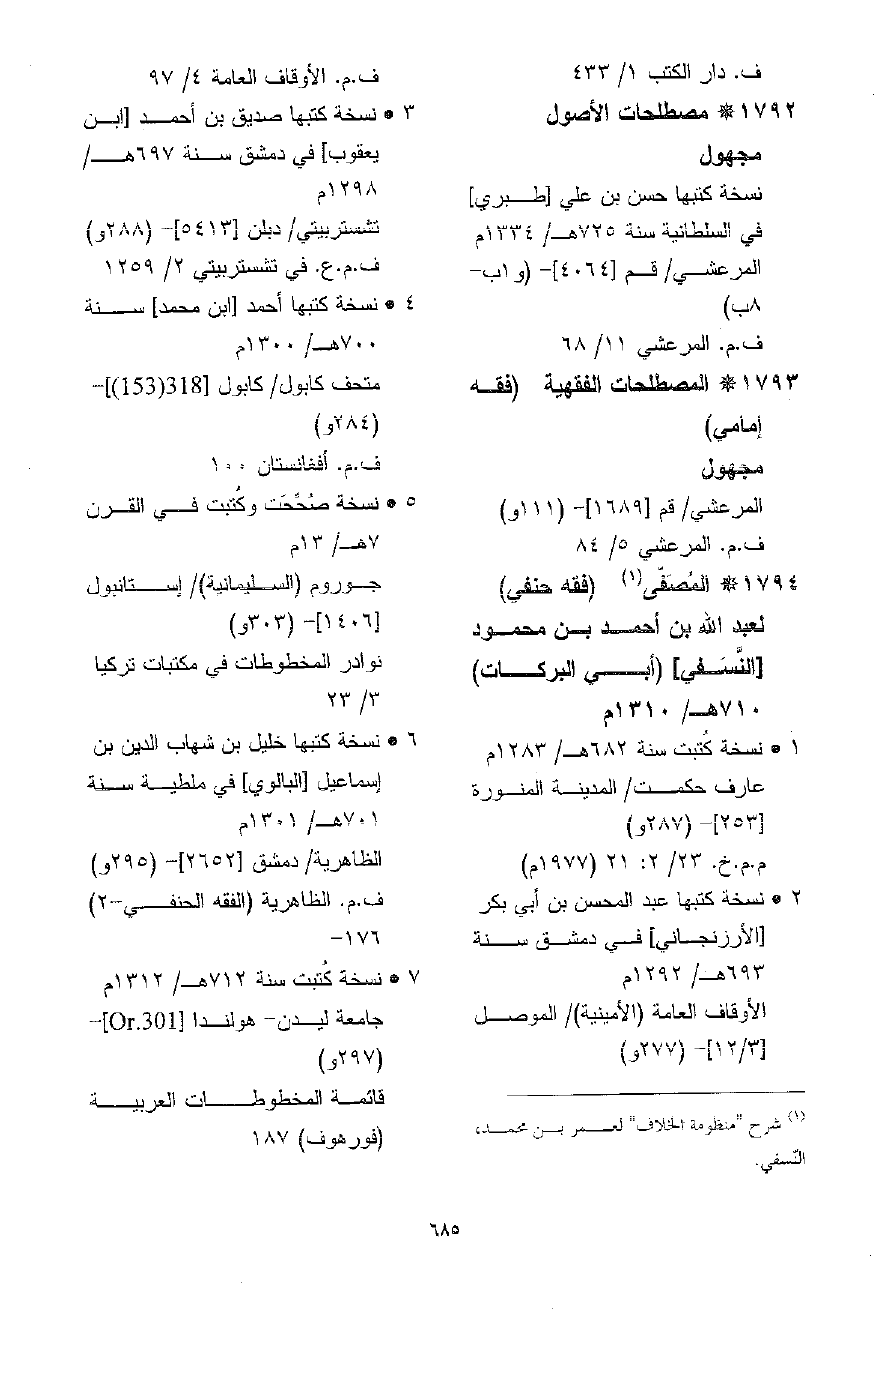 ف. دار الكتب ١/ ٤٣٣
١٧٩٢ * مصطلحات الأصول
مجهول
نسخة كتبها حسن بن علي [طبري]
في السلطانية سنة ٧٢٥هـ/ ١٣٣٤م
المرعشي/ قم [٤٠٦٤]- (و ١ب-
٨ب)
ف.م. المرعشي ١١/ ٦٨
١٧٩٣ * المصطلحات الفقهية (فقه
إمامي)
مجهول
المرعشي/ قم [١٦٨٩]- (١١١و)
ف.م. المرعشي ٥/ ٨٤
١٧٩٤ * المُصَفّى(١) (فقه حنفي)
لعبد الله بن أحمد بن محمود
[النَّسَفي] (أبي البركات)
٧١٠هـ/ ١٣١٠م
١ • نسخة كُتبت سنة ٦٨٢هـ/ ١٢٨٣م
عارف حكمت/ المدينة المنورة
[٢٥٣]- (٢٨٧و)
م.م.خ. ٢٣/ ٢: ٢١ (١٩٧٧م)
٢ • نسخة كتبها عبد المحسن بن أبي بكر
[الأرزنجاني] في دمشق سنة
٦٩٣هـ/ ١٢٩٢م
الأوقاف العامة (الأمينية)/ الموصل
[١٢/٣]- (٢٧٧و)
(١) شرح "منظومة الخلاف" لعمر بن محمد،
النّسفي.
ف.م. الأوقاف العامة ٤/ ٩٧
٣ • نسخة كتبها صديق بن أحمد [ابن
يعقوب] في دمشق سنة ٦٩٧هـ/
١٢٩٨م
تشستربيتي/ دبلن [٥٤١٣]- (٢٨٨و)
ف.م.ع. في تشستربيتي ٢/ ١٢٥٩
٤ • نسخة كتبها أحمد [ابن محمد] سنة
٧٠٠هـ/ ١٣٠٠م
متحف كابول/ كابول [318(153)]-
(٢٨٤و)
ف.م. أفغانستان ١٠٠
٥ • نسخة صُحِّحَت وكُتبت في القرن
٧هـ/ ١٣م
جوروم (السليمانية)/ إستانبول
[١٤٠٦]- (٣٠٣و)
نوادر المخطوطات في مكتبات تركيا
٣/ ٢٣
٦ • نسخة كتبها خليل بن شهاب الدين بن
إسماعيل [البالوي] في ملطية سنة
٧٠١هـ/ ١٣٠١م
الظاهرية/ دمشق [٢٦٥٢]- (٢٩٥و)
ف.م. الظاهرية (الفقه الحنفي-٢)
١٧٦-
٧ • نسخة كُتبت سنة ٧١٢هـ/ ١٣١٢م
جامعة ليدن- هولندا [Or.301]-
(٢٩٧و)
قائمة المخطوطات العربية
(فورهوف) ١٨٧
٦٨٥